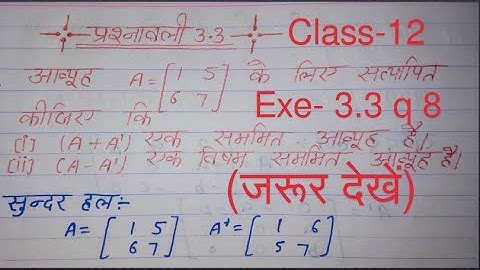 प्रश्नावली 3.3
Class-12
आव्यूह A = [1 5 के लिए सत्यापित
6 7]
कीजिए कि
Exe- 3.3 q 8
(i) (A + A') एक सममित आव्यूह है।
(ii) (A - A') एक विषम सममित आव्यूह है।
(जरूर देखें)
सुन्दर हल:-
A = [1 5 A' = [1 6
6 7] 5 7]